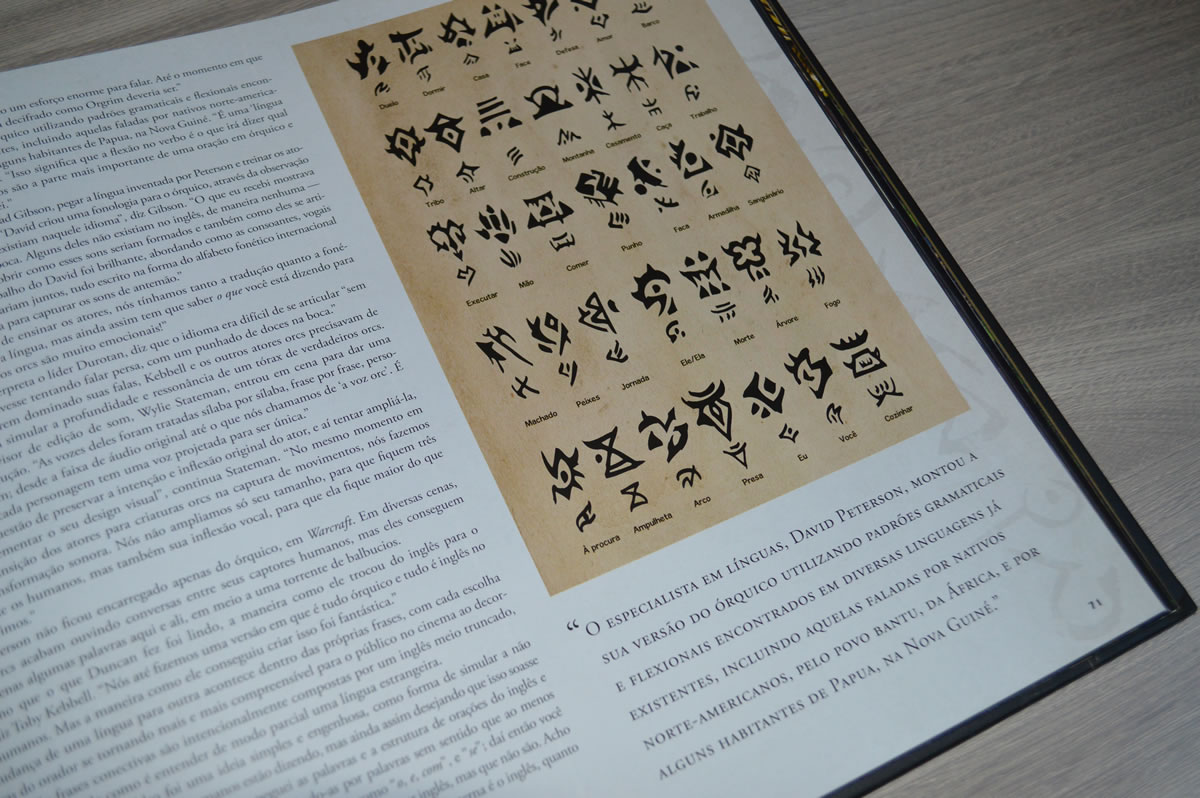 o um esforço enorme para falar. Até o momento em que
decifrado como Orgrim deveria ser."
quico utilizando padrões gramaticais e flexionais encon-
tes, incluindo aquelas faladas por nativos norte-america-
guns habitantes de Papua, na Nova Guiné. "É uma 'língua
"Isso significa que a flexão no verbo é o que irá dizer qual
os são a parte mais importante de uma oração em órquico e
ad Gibson, pegar a língua inventada por Peterson e treinar os ato-
"David criou uma fonologia para o órquico, através da observação
existiam naquele idioma", diz Gibson. "O que eu recebi mostrava
boca. Alguns deles não existiam no inglês, de maneira nenhuma —
obrir como esses sons seriam formados e também como eles se arti-
balho do David foi brilhante, abordando como as consoantes, vogais
ariam juntos, tudo escrito na forma do alfabeto fonético internacional
para capturar os sons de antemão."
de ensinar os atores, nós tínhamos tanto a tradução quanto a foné-
a língua, mas ainda assim tem que saber o que você está dizendo para
os orcs são muito emocionais!"
rpreta o líder Durotan, diz que o idioma era difícil de se articular "sem
vesse tentando falar persa, com um punhado de doces na boca."
em dominado suas falas, Kebbell e os outros atores orcs precisavam de
simular a profundidade e ressonância de um tórax de verdadeiros orcs.
visor de edição de som, Wylie Stateman, entrou em cena para dar uma
ução. "As vozes deles foram tratadas sílaba por sílaba, frase por frase, perso-
m; desde a faixa de áudio original até o que nós chamamos de 'a voz orc'. É
cada personagem tem uma voz projetada para ser única."
uestão de preservar a intenção e inflexão original do ator, e aí tentar ampliá-la,
ementar o seu design visual", continua Stateman. "No mesmo momento em
nsição dos atores para criaturas orcs na captura de movimentos, nós fazemos
nsformação sonora. Nós não ampliamos só seu tamanho, para que fiquem três
e os humanos, mas também sua inflexão vocal, para que ela fique maior do que
rson não ficou encarregado apenas do órquico, em Warcraft. Em diversas cenas,
rcs acabam ouvindo conversas entre seus captores humanos, mas eles conseguem
enas algumas palavras aqui e ali, em meio a uma torrente de balbucios.
ho que o que Duncan fez foi lindo, a maneira como ele trocou do inglês para o
iz Toby Kebbell. "Nós até fizemos uma versão em que é tudo órquico e tudo é inglês no
umanos. Mas a maneira como ele conseguiu criar isso foi fantástica."
udança de uma língua para outra acontece dentro das próprias frases, com cada escolha
do orador se tornando mais e mais compreensível para o público no cinema ao decor-
frases conectivas são intencionalmente compostas por um inglês meio truncado,
como é entender de modo parcial uma língua estrangeira.
foi uma ideia simples e engenhosa, como forma de simular a não
humanos estão dizendo, mas ainda assim desejando que isso soasse
eguei as palavras e a estrutura de orações do inglês e
do-as por palavras sem sentido que ao menos
como "o, e, com", e "se"; daí então você
inglês, mas que não são. Acho
erna é o inglês, quanto
Defesa Amor Barco
Duelo Dormir Casa Faca
Montanha Casamento Caça Trabalho
Tribo Altar Construção
Punho Faca Armadilha Sanguinário
Executar Mão Comer
Ele/Ela Morte Árvore Fogo
Machado Peixes Jornada
À procura Ampulheta Arco Presa Eu Você Cozinhar
"O especialista em línguas, David Peterson, montou a
sua versão do órquico utilizando padrões gramaticais
e flexionais encontrados em diversas linguagens já
existentes, incluindo aquelas faladas por nativos
norte-americanos, pelo povo bantu, da África, e por
alguns habitantes de Papua, na Nova Guiné."
71